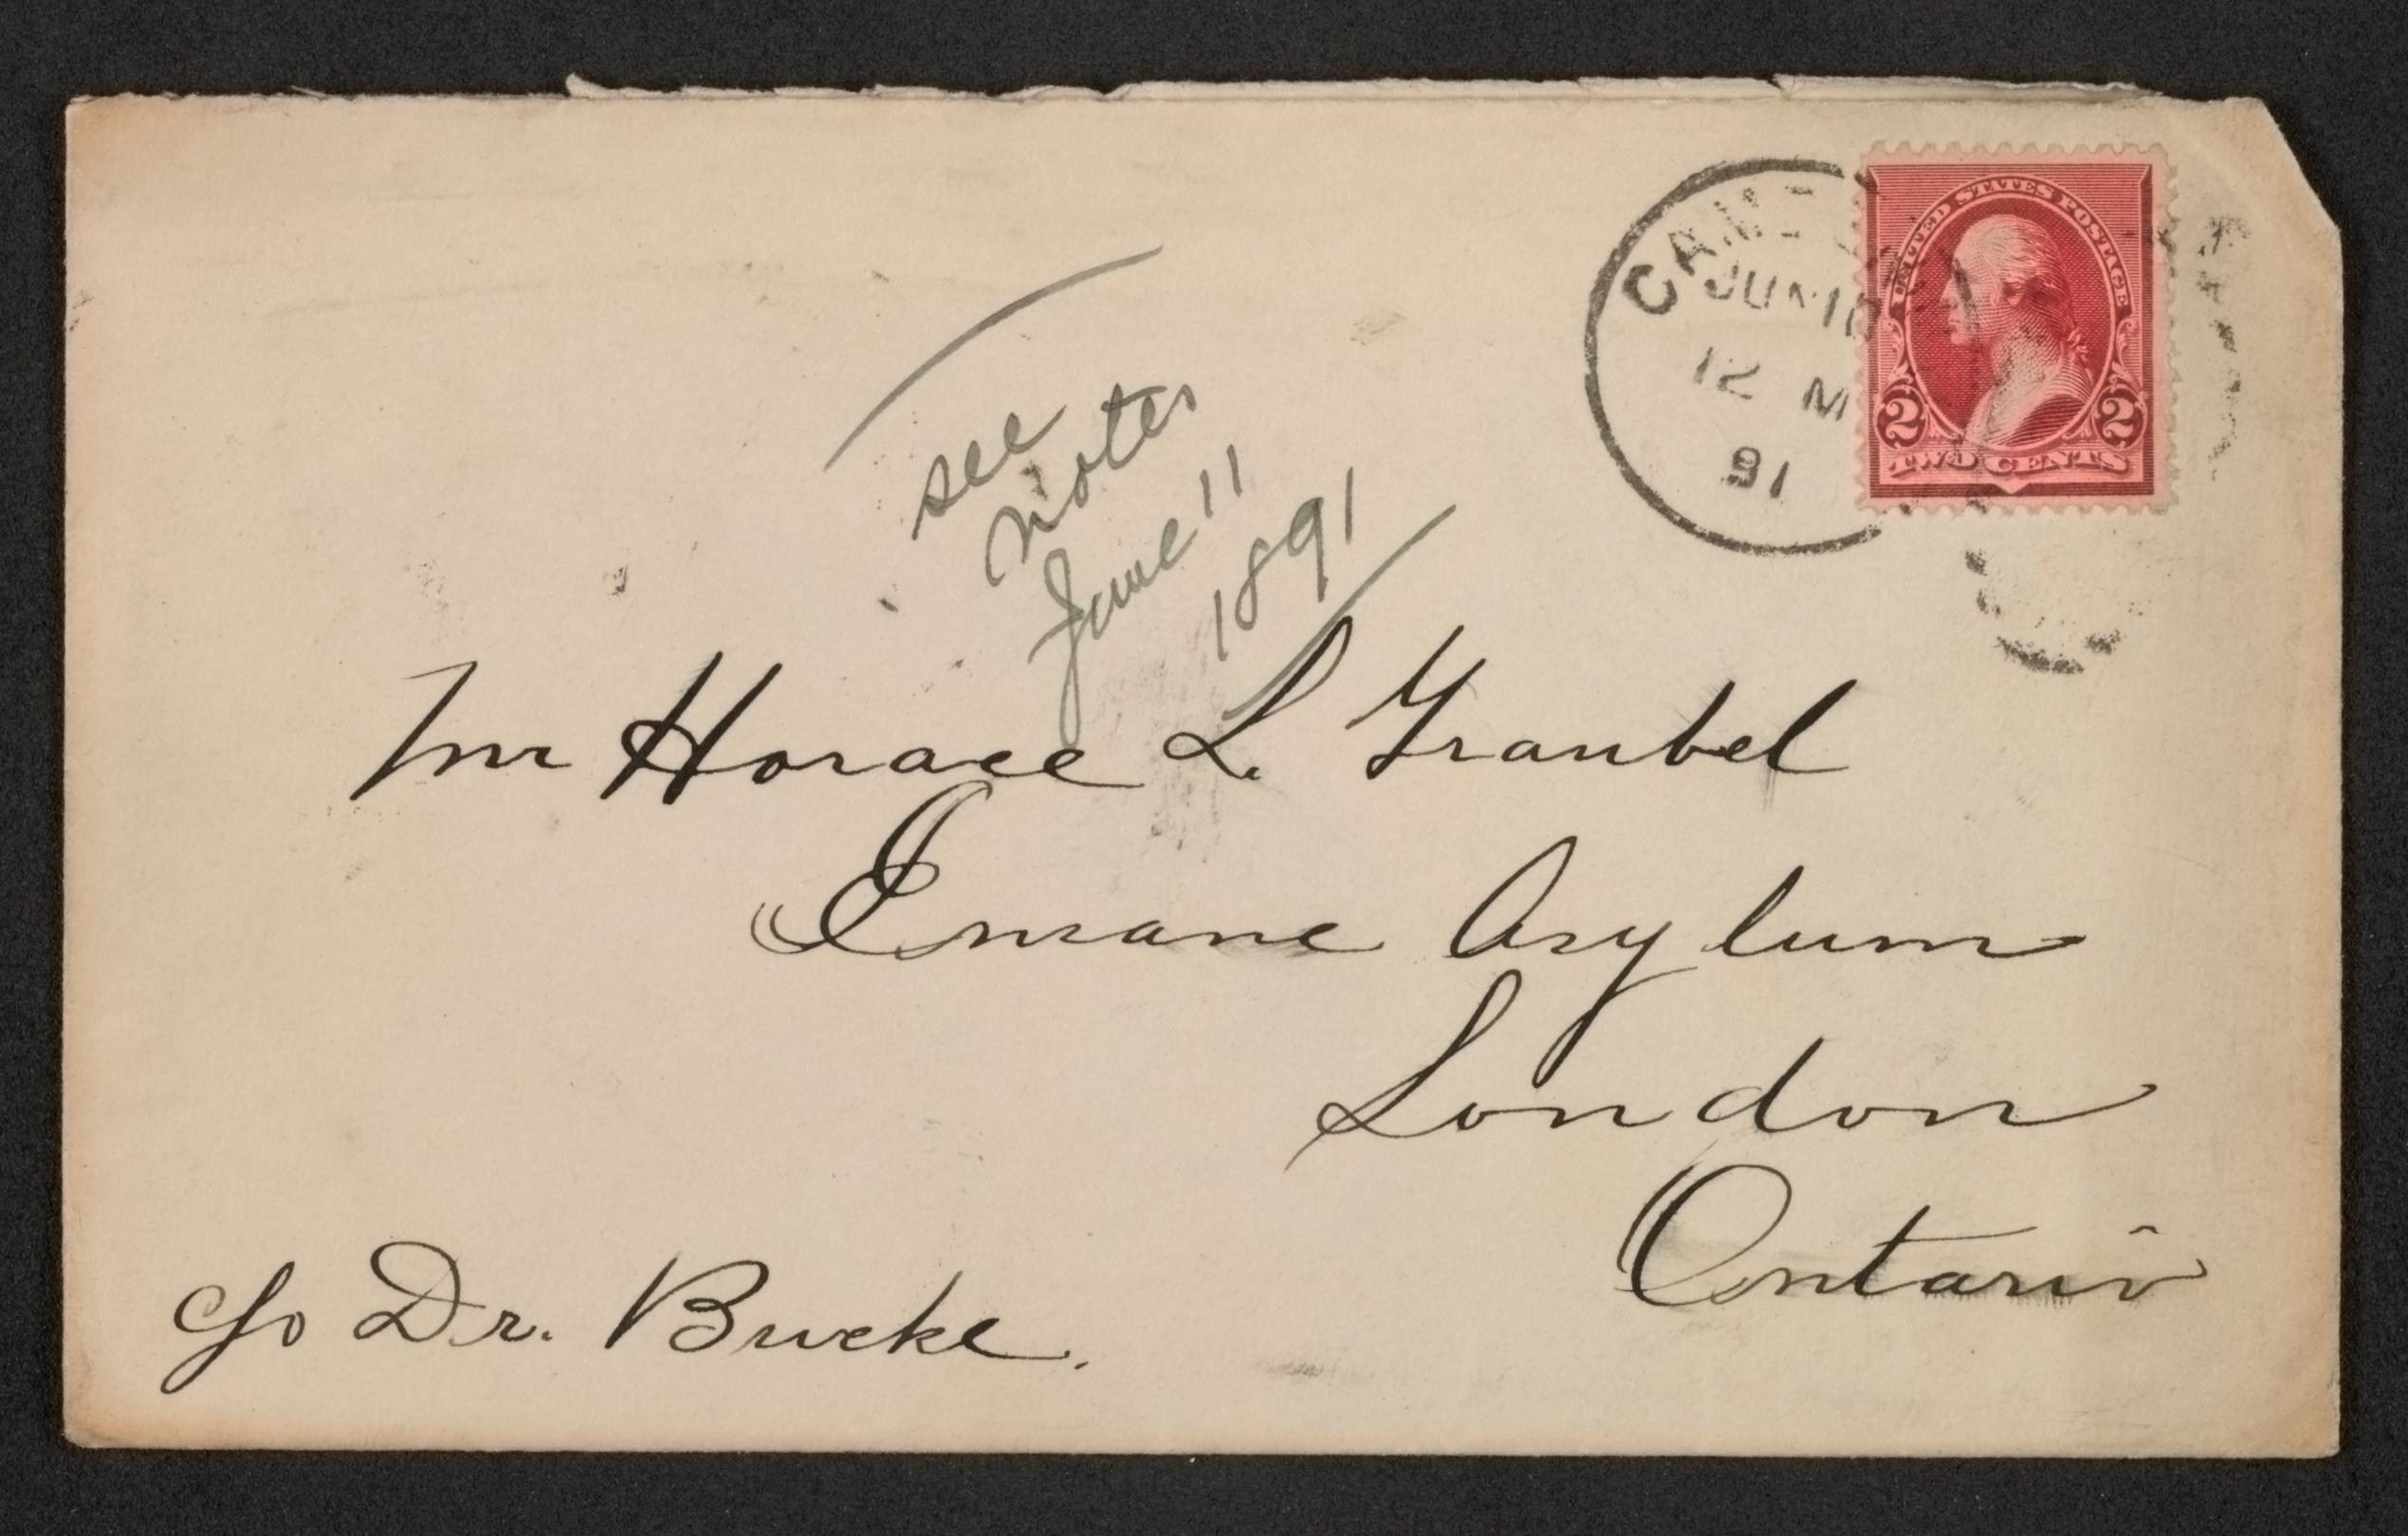 UNITED STATES POSTAGE
2 2
TWO CENTS
JUN 10
12 M
91
see
notes
June 11
1891
Mr Horace L. Traubel
Insane Asylum
London
Ontario
c/o Dr. Bucke.